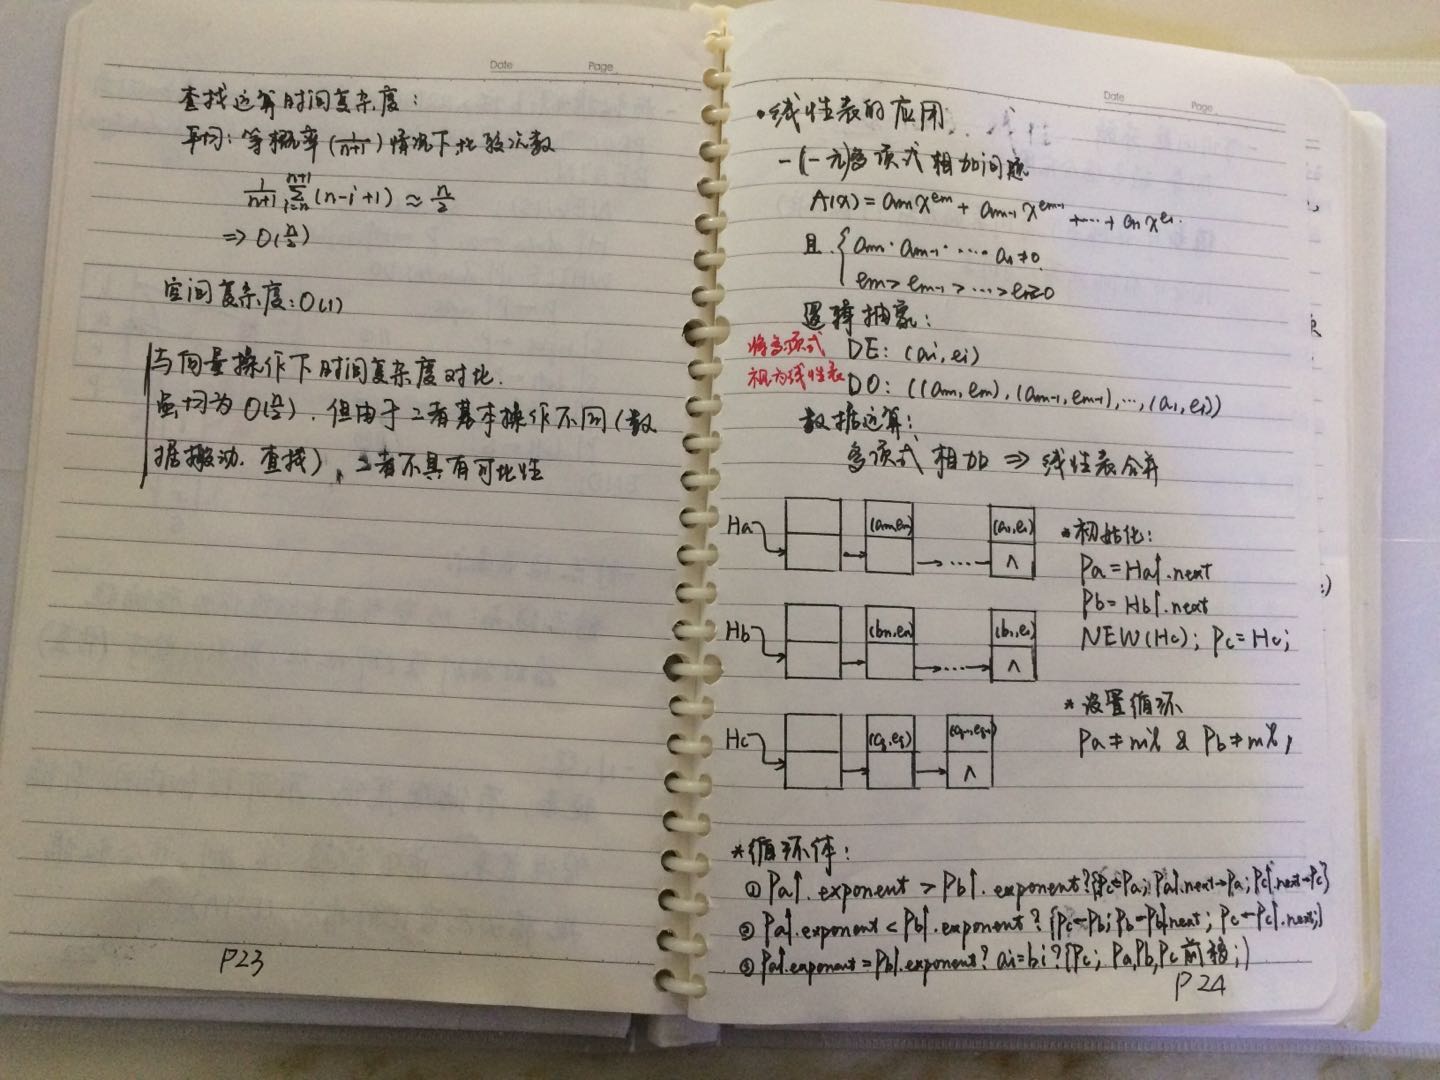 Date Page
查找运算时间复杂度:
平均: 等概率(1/n+1)情况下比较次数
1/n+1 ∑(n-i+1) ≈ n/2
⇒ O(n/2)
空间复杂度: O(1)
与向量操作下时间复杂度对比.
虽均为O(n/2). 但由于二者基本操作不同(数
据搬动. 查找), 二者不具有可比性
P23
Date Page
• 线性表的应用
- (一元)多项式相加问题
A(x) = amx^em + am-1x^em-1 + ... + a1x^e1.
且 { am · am-1 · ... a1≠0.
em > em-1 > ... > e1≥0
逻辑抽象:
将多项式 DE: (ai, ei)
视为线性表 DO: ((am, em), (am-1, em-1), ..., (a1, e1))
数据运算:
多项式相加 ⇒ 线性表合并
Ha (am,em) ... (a1,e1) ∧
*初始化:
Pa = Ha↑.next
Pb = Hb↑.next
NEW(Hc); Pc = Hc;
Hb (bn,en) ... (b1,e1) ∧
*设置循环
Pa ≠ nil & Pb ≠ nil,
Hc ∧
*循环体:
① Pa↑.exponent > Pb↑.exponent? {Pc←Pa; Pa↑.next→Pa; Pc↑.next→Pc}
② Pa↑.exponent < Pb↑.exponent? {Pc←Pb; Pb←Pb↑.next; Pc←Pc↑.next;}
③ Pa↑.exponent = Pb↑.exponent? ai=bi? {Pc; Pa,Pb,Pc前移;}
P24